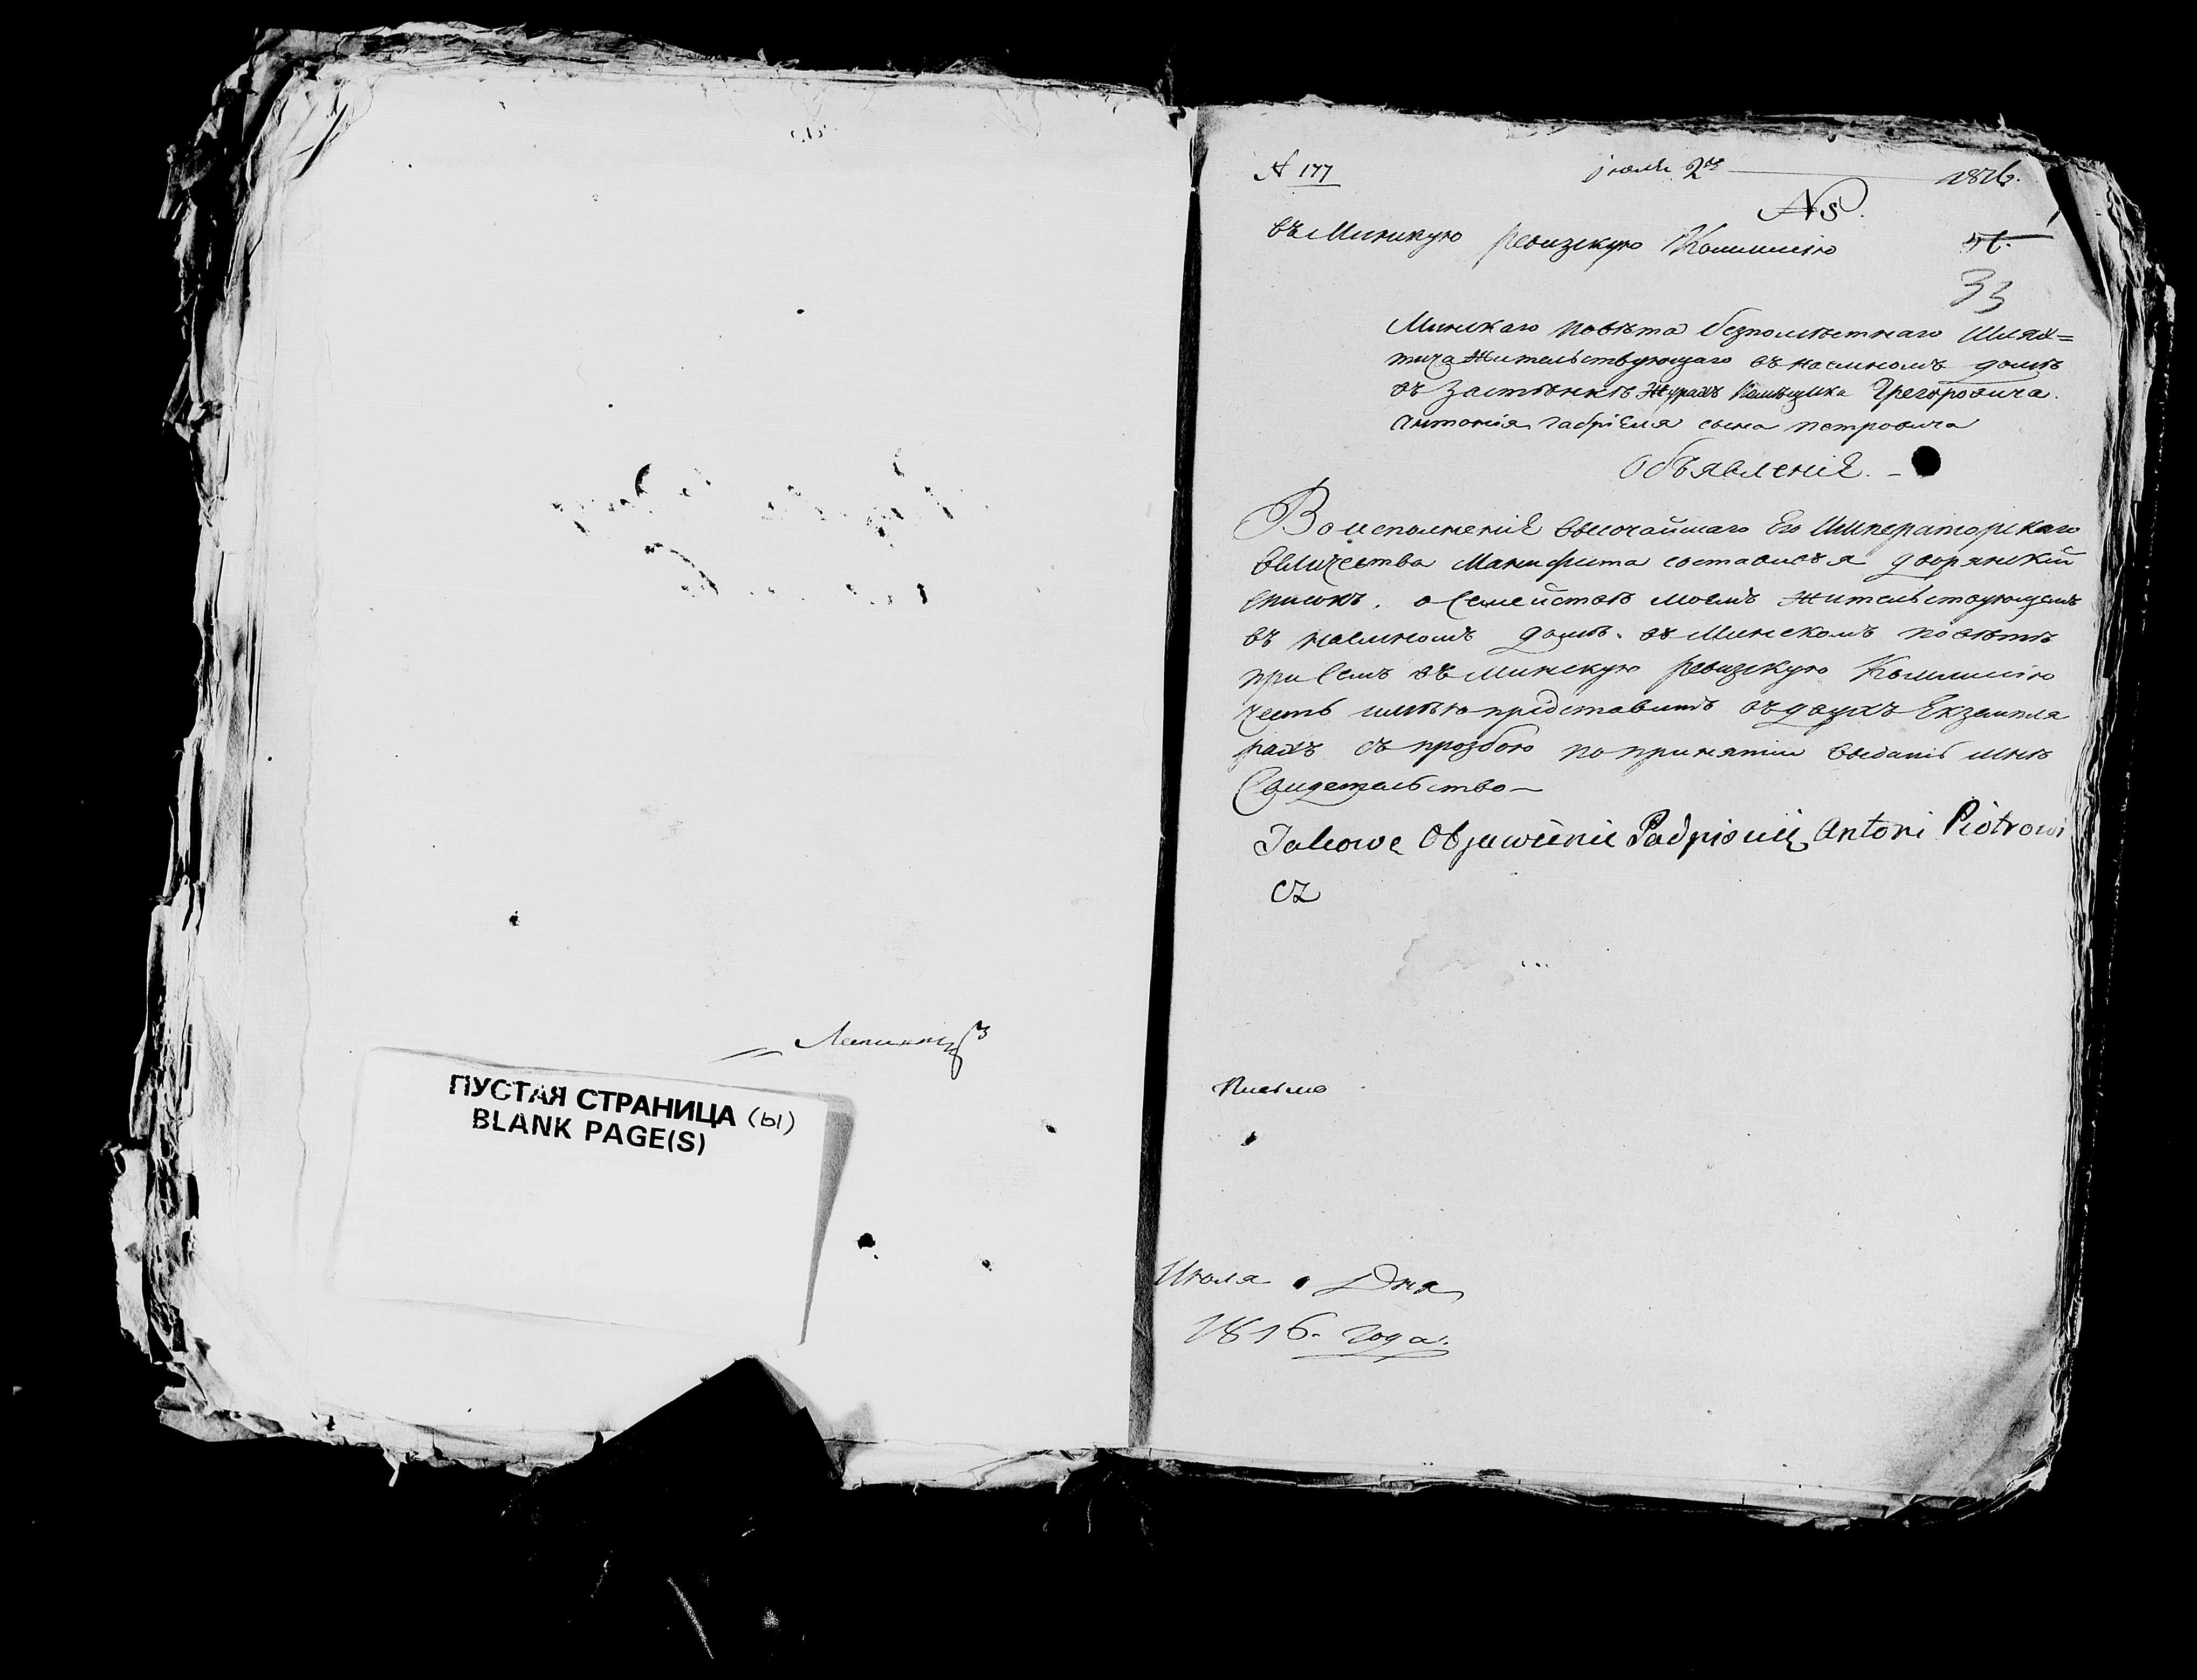 ПУСТАЯ СТРАНИЦА (Ы)
BLANK PAGE(S)
№ 177 июля 2го 1816.
№ 8.
въ Минскую ревизскую Коммисію
33
Минскаго повѣта безпомѣстнаго Шлях=
тича жительствующаго въ наемномъ домѣ
въ застѣнкѣ Журахъ помѣщика Грегоровича.
Антонія Габріеля сына Петровича
Объявленіе.
Во исполненіе высочайшаго Его Императорскаго
величества Манифеста составився дворянскій
списокъ. о семействѣ моемъ жительствующемъ
въ наемномъ домѣ. въ Минскомъ повѣтѣ
при семъ въ минскую ревизскую Коммисію
честь имѣю представить въ двухъ Екземпля
рахъ съ прозбою по принятіи выдать мнѣ
Свидетельство—
Jakowe Objawienie Padpisuię Antoni Piotrowi
cz
Июля Дня
1816. года.